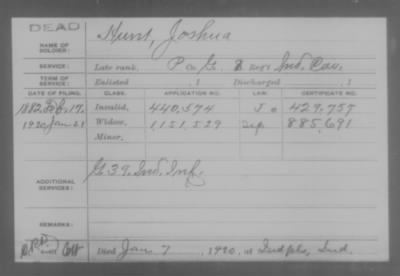 DEAD
NAME OF SOLDIER: Hunt, Joshua
SERVICE: Late rank, P Co. G. 8 Reg't Ind. Cav.
TERM OF SERVICE: Enlisted , 1 Discharged , 1
DATE OF FILING. CLASS. APPLICATION NO. LAW. CERTIFICATE NO.
1882, Feb. 17. Invalid, 440,574 429,757
1920, Jan. 21 Widow, 1151,529 885,691
Minor,
ADDITIONAL SERVICES: G. 39, Ind. Inf.
REMARKS:
Died Jan 7, 1920, at Indpls, Ind.